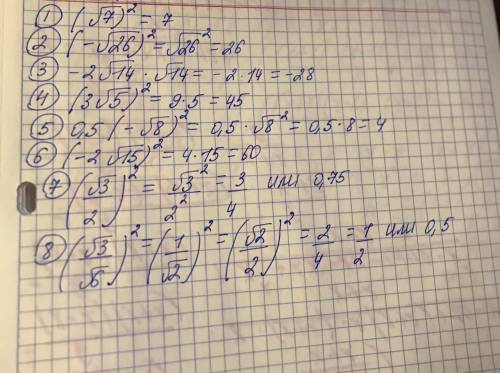 ① (√7)² = 7
② (-√26)² = √26² = 26
③ -2√14 · √14 = -2·14 = -28
④ (3√5)² = 9·5 = 45
⑤ 0,5 (-√8)² = 0,5 · √8² = 0,5·8 = 4
⑥ (-2√15)² = 4·15 = 60
⑦ (√3/2)² = √3²/2² = 3/4 или 0,75
⑧ (√3/√6)² = (1/√2)² = (√2/2)² = 2/4 = 1/2 или 0,5